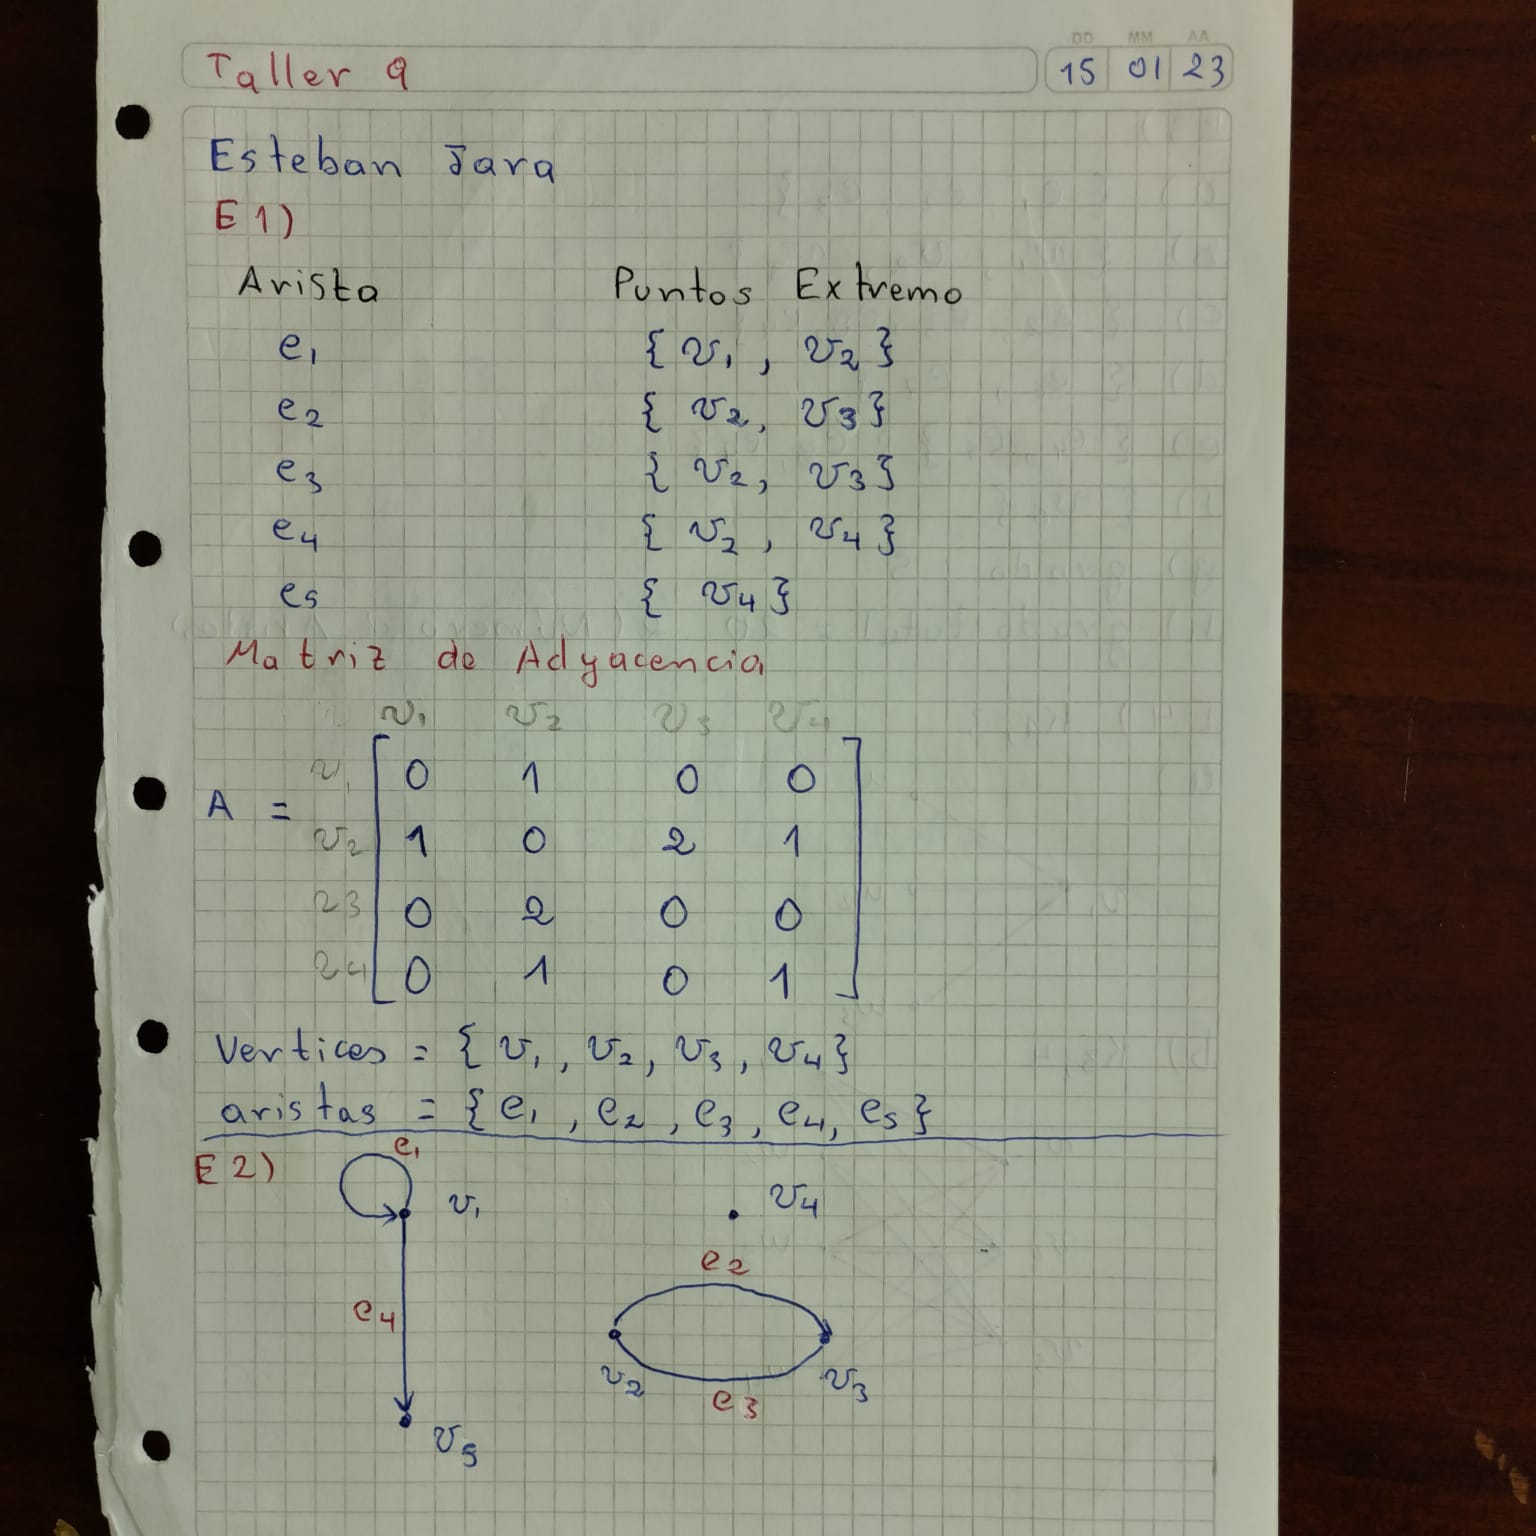 Taller 9
DD MM AA
15 01 23
Esteban Jara
E1)
Arista Puntos Extremo
e1 {v1, v2}
e2 {v2, v3}
e3 {v2, v3}
e4 {v2, v4}
e5 {v4}
Matriz de Adyacencia
v1 v2 v3 v4
v1 0 1 0 0
A =
v2 1 0 2 1
v3 0 2 0 0
v4 0 1 0 1
Vertices = {v1, v2, v3, v4}
aristas = {e1, e2, e3, e4, e5}
E2)
e1
v1 v4
e2
e4
v2 v3
e3
v5